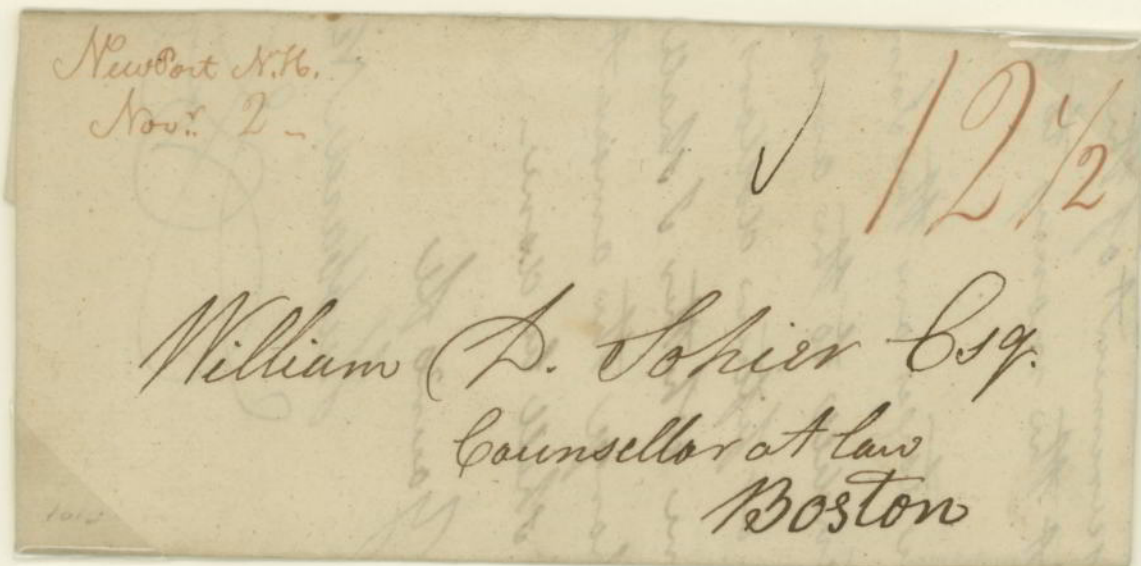 NewPort N.H.
Novr. 2
12 1/2
William D. Sohier Esq.
Counsellor at law
Boston